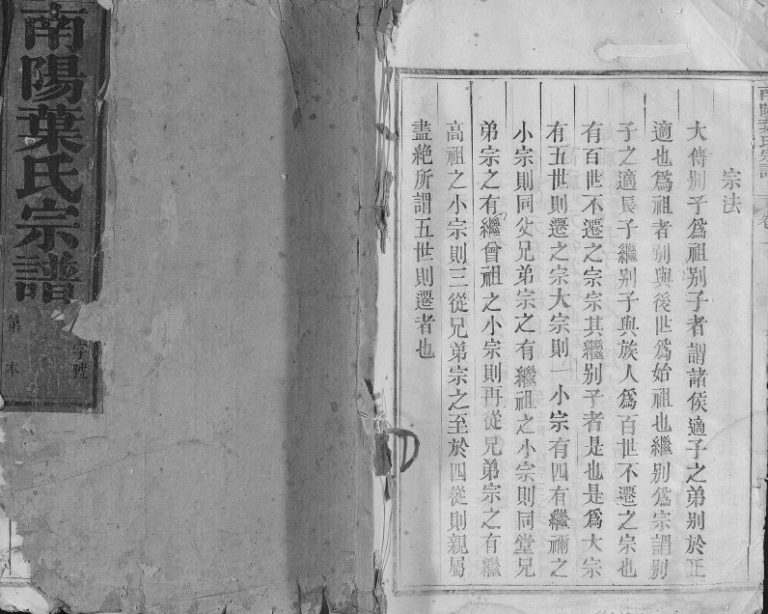 南陽葉氏宗譜
字號
第 本
南陽葉氏宗譜
宗法
大傳别子爲祖别子者謂諸侯適子之弟别於正
適也爲祖者别與後世爲始祖也繼别爲宗謂别
子之適長子繼别子與族人爲百世不遷之宗也
有百世不遷之宗宗其繼别子者是也是爲大宗
有五世則遷之宗大宗則一小宗有四有繼禰之
小宗則同父兄弟宗之有繼祖之小宗則同堂兄
弟宗之有繼曾祖之小宗則再從兄弟宗之有繼
高祖之小宗則三從兄弟宗之至於四從則親屬
盡絶所謂五世則遷者也